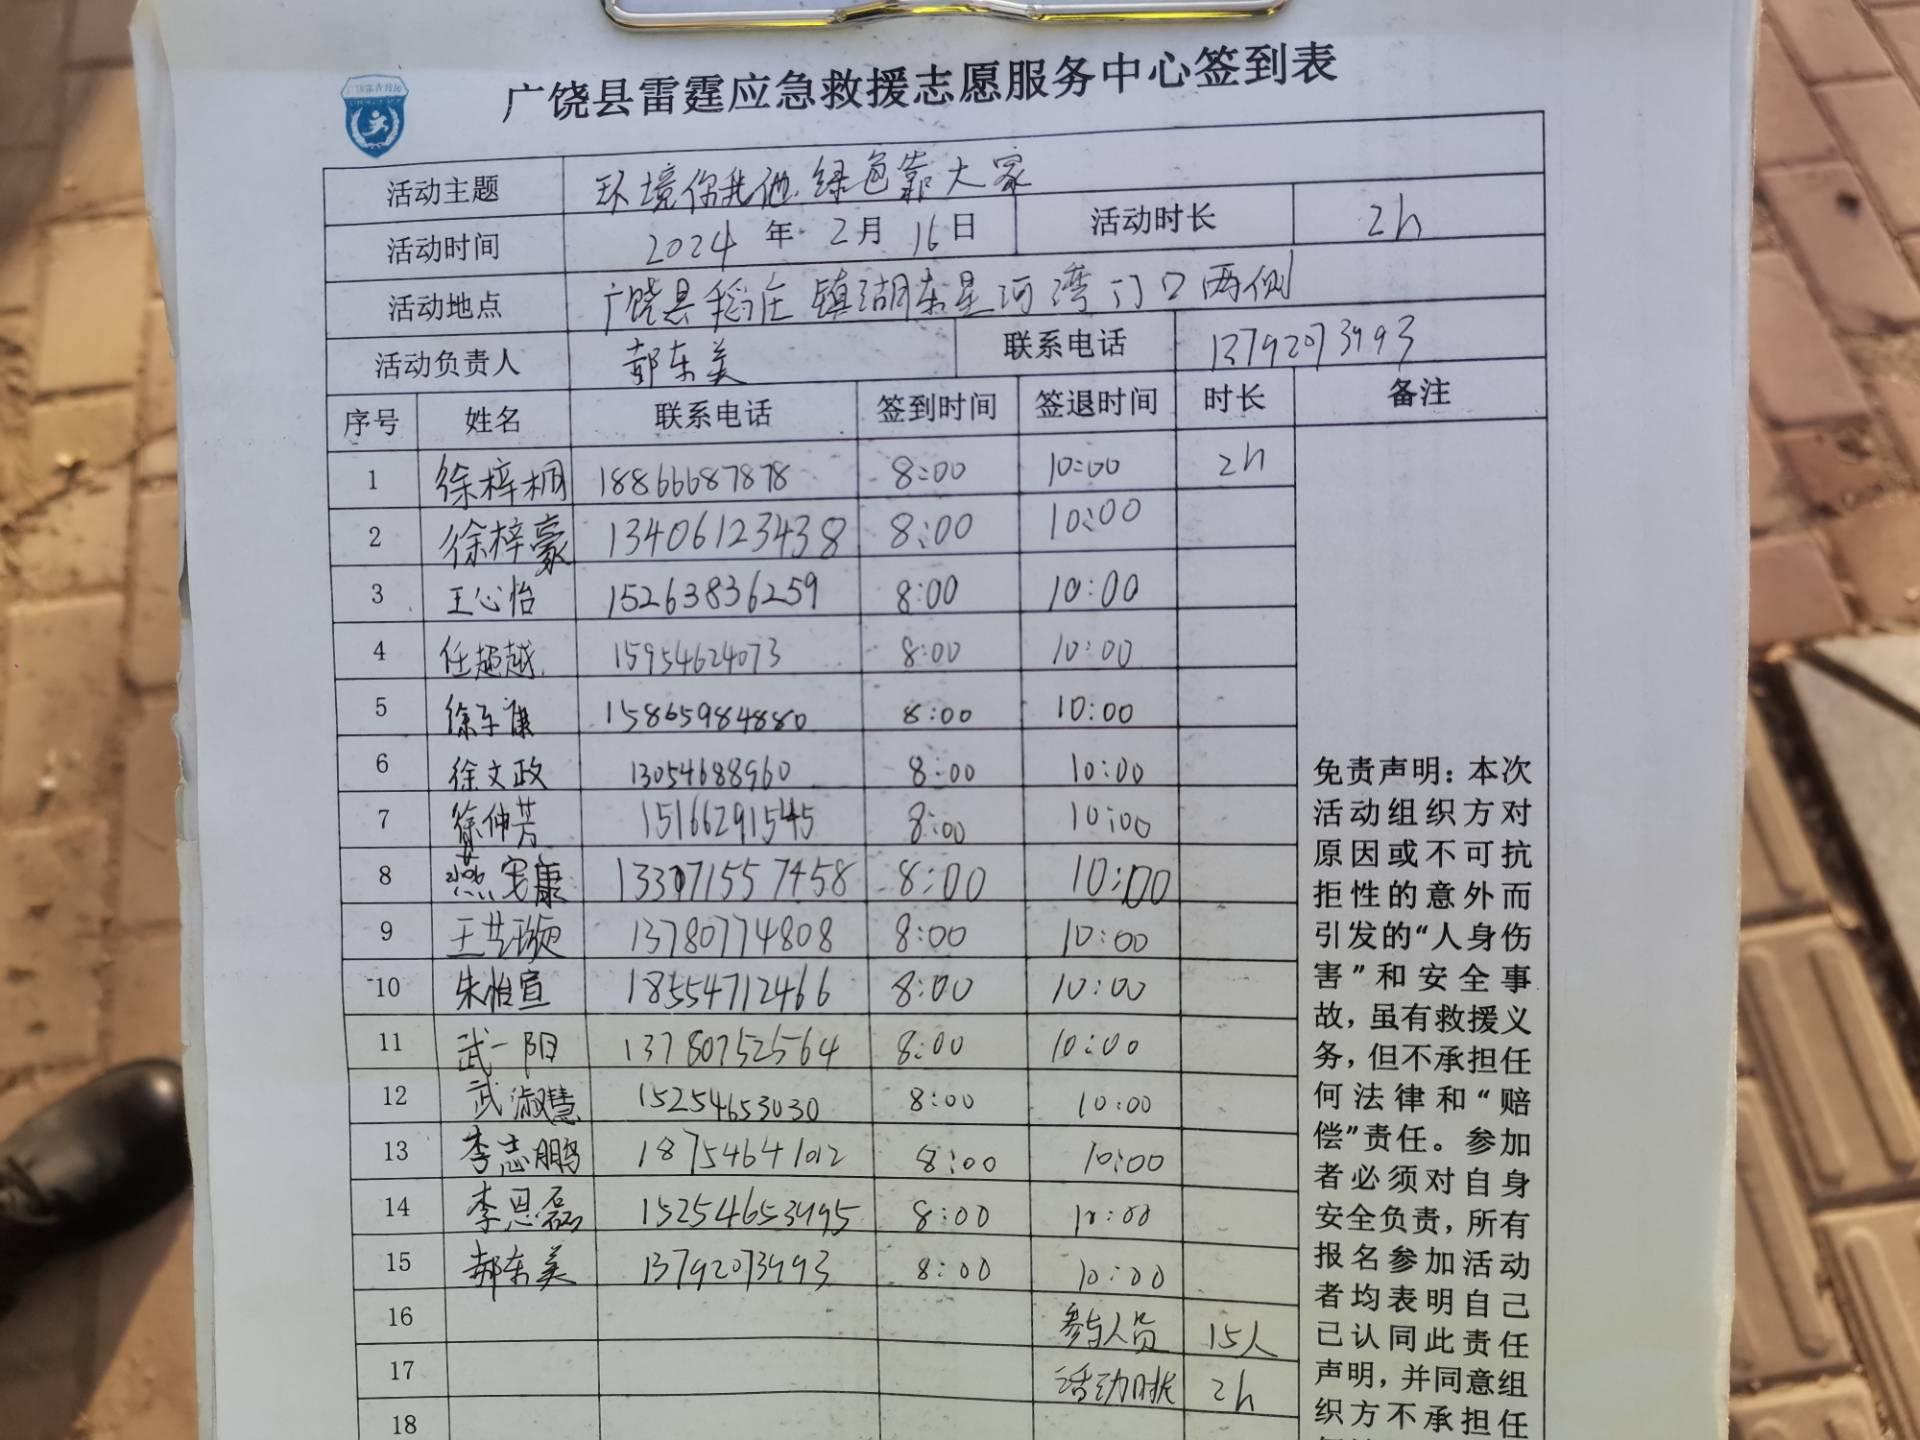 广饶县雷霆应急救援志愿服务中心签到表
活动主题 环境你我他.绿色靠大家
活动时间 2024 年 2 月 16 日 活动时长 2h
活动地点 广饶县稻庄镇湖东星河湾门口两侧
活动负责人 郝东美 联系电话 13792073993
序号 姓名 联系电话 签到时间 签退时间 时长 备注
1 徐梓桐 18866687878 8:00 10:00 2h
2 徐梓豪 13406123438 8:00 10:00
3 王心怡 15263836259 8:00 10:00
4 任超越 15954624073 8:00 10:00
5 徐 15865984880 8:00 10:00
6 徐文政 13054688960 8:00 10:00
7 徐仲芳 15166291545 8:00 10:00
8 燕安康 8:00 10:00
9 王艺璇 13780774808 8:00 10:00
10 朱怡宣 18554712466 8:00 10:00
11 武一阳 13780752564 8:00 10:00
12 武淑慧 15254653030 8:00 10:00
13 李志鹏 18754641012 8:00 10:00
14 李恩磊 15254653995 8:00 10:00
15 郝东美 13792073993 8:00 10:00
16 参与人员 15人
17 活动时长 2h
18
免责声明：本次
活动组织方对
原因或不可抗
拒性的意外而
引发的“人身伤
害”和安全事
故，虽有救援义
务，但不承担任
何法律和“赔
偿”责任。参加
者必须对自身
安全负责，所有
报名参加活动
者均表明自己
已认同此责任
声明，并同意组
织方不承担任